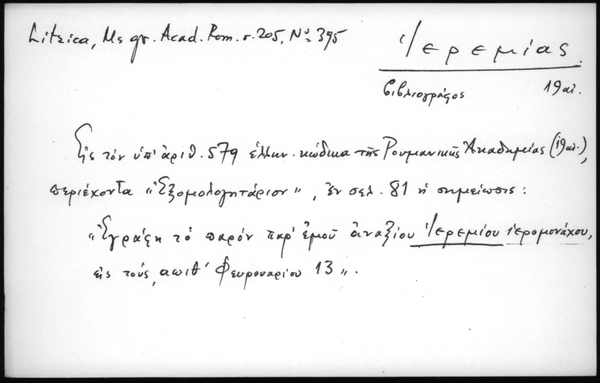 Litzica, Ms gr. Acad. Rom. σ. 205, No 395
Ἰερεμίας.
βιβλιογράφος 19 αἰ.
Εἰς τὸν ὑπ' ἀριθ. 579 ἑλλην. κώδικα τῆς Ρουμανικῆς Ἀκαδημίας (19 αἰ.),
περιέχοντα "Ἐξομολογητάριον", ἐν σελ. 81 ἡ σημείωσις:
"Ἐγράφη τὸ παρὸν παρ' ἐμοῦ ἀναξίου Ἰερεμίου ἱερομονάχου,
εἰς τοὺς ͵αωιθ' Φευρουαρίου 13".